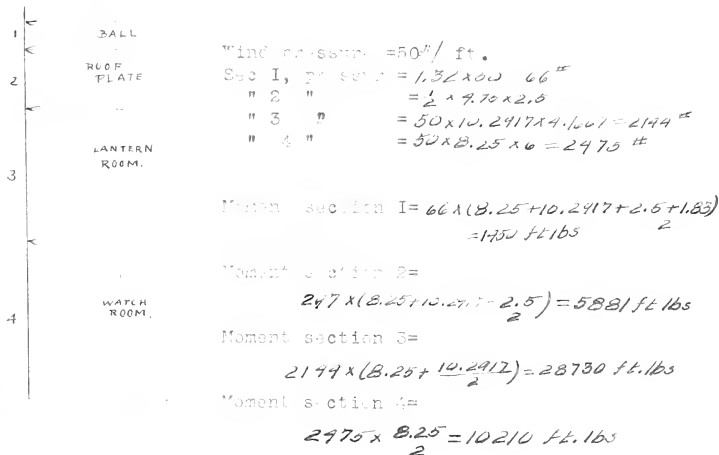 1 BALL
2 ROOF PLATE
3 LANTERN ROOM.
4 WATCH ROOM.
Wind pressure =50#/ ft.
Sec I, = 1.32 x 50 66#
" 2 " = 1/2 x 4.75 x 2.5
" 3 " = 50 x 10.2917 x = 2144#
" 4 " = 50 x 8.25 x 6 = 2475 #
Moment section I= 66 x (8.25+10.2917+2.5+1.83/2)
=1450 ft lbs
Moment section 2=
247 x (8.25+ 2.5/2) = 5881 ft lbs
Moment section 3=
2144 x (8.25+ 10.2917/2) = 28730 ft.lbs
Moment section 4=
2475 x 8.25/2 = 10210 ft. lbs